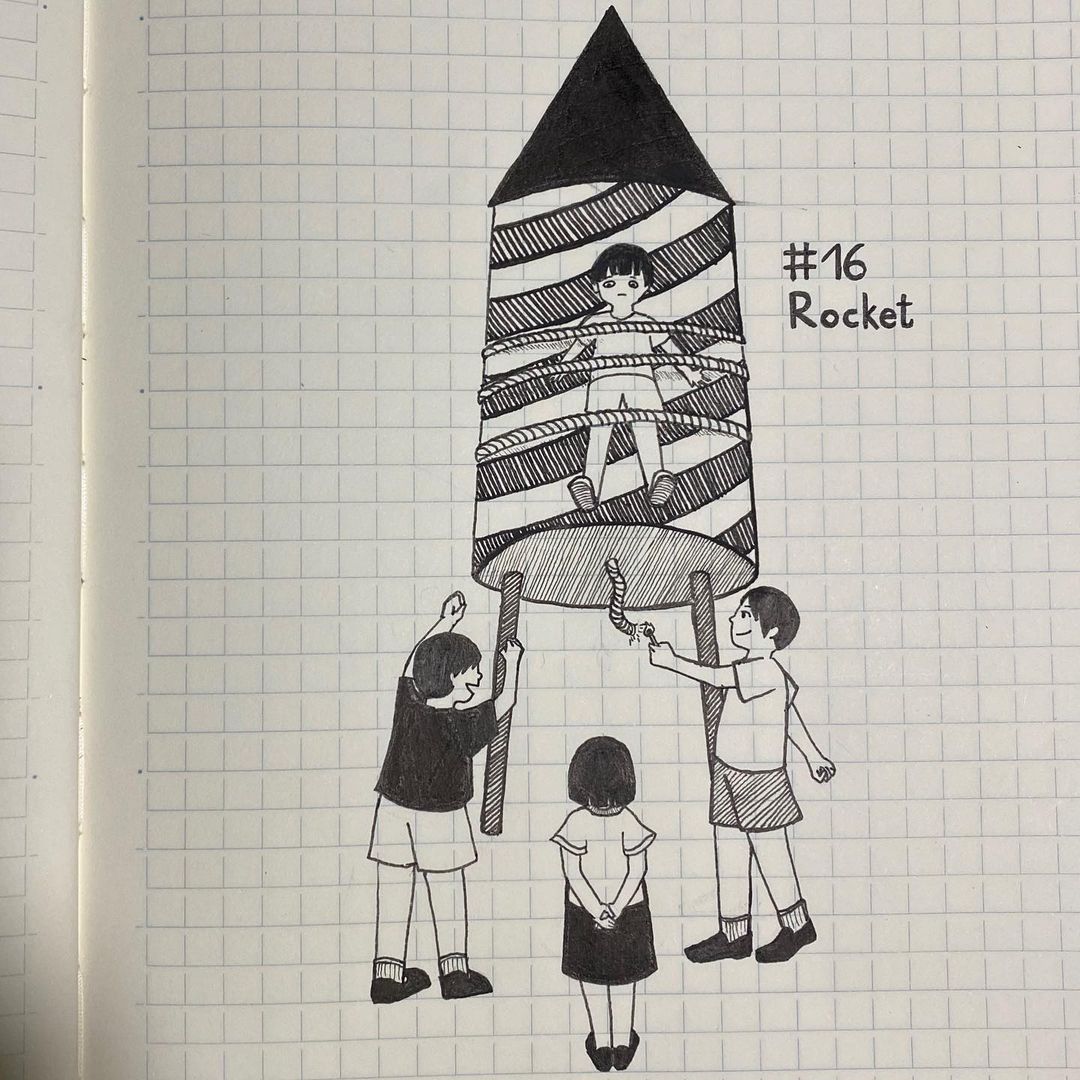 #16
Rocket